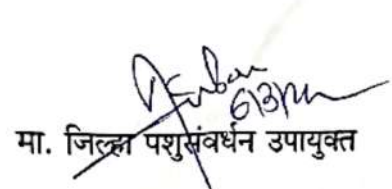 मा. जिल्हा पशुसंवर्धन उपायुक्त